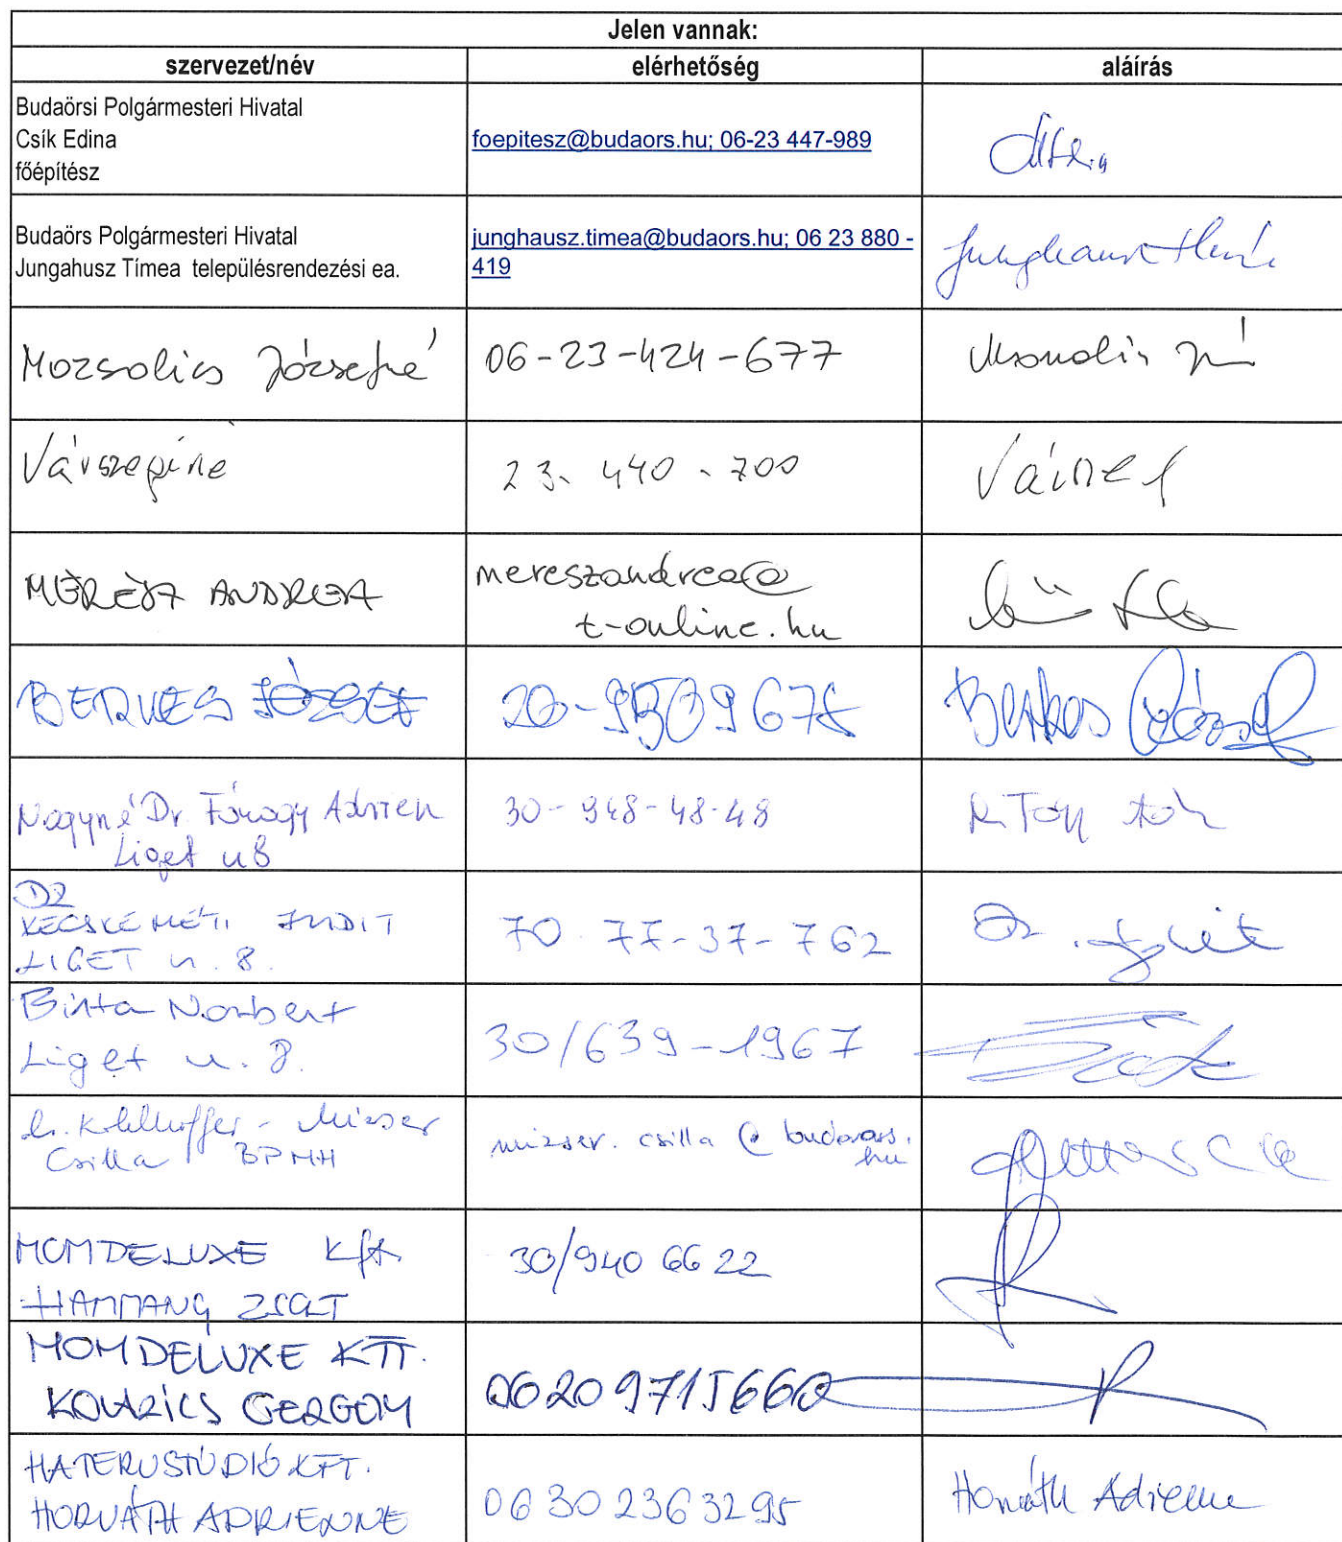 Jelen vannak:
szervezet/név elérhetőség aláírás
Budaörsi Polgármesteri Hivatal
Csík Edina
főépítész
foepitesz@budaors.hu; 06-23 447-989
Budaörs Polgármesteri Hivatal
Jungahusz Tímea településrendezési ea.
junghausz.timea@budaors.hu; 06 23 880 -
419
Mozsolics Józsefné 06-23-424-677
Várszeginé 23. 440-700
MÉRÉSZ ANDREA
mereszandrea@
t-online.hu
JÓZSEF
Nagyné Dr. Adrien 30-948-48-48
Liget u 8
DR
KECSKEMÉTI JUDIT
LIGET u. 8.
70 77-37-762
Norbert
Liget u. 8.
30/639-1967
Csilla BPMH
mizser.csilla@budaors.
hu
MOMDELUXE Kft.
HAMMANG ZSOLT
30/940 66 22
MOMDELUXE KFT.
KOVÁCS GERGELY
HATERUSTÚDIÓ KFT.
HORVÁTH ADRIENNE
06 30 236 3295 Horváth Adrienne